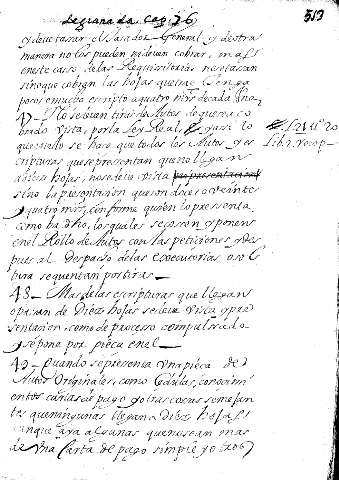 de granada Cap. 76
313
y deve tassar el Tasador General, y de otra
manera no los pueden ni deven cobrar, mas
en este caso de las Requisitorias no se tasan
sino que cobran las hojas que trae tenga
pocos o mucho escripto a quatro mrs de cada
47 — No se lleuan tiras de Autos de que se a co
brado vista, por la Ley Real, y assi lo
que es a se hace que todos los Autos y es
cripturas que se presentan que no llegan
a diez hojas, no se deve
sino la presentacion que son doce o veinte
y quatro mrs, conforme quien lo presenta
como ha dho, los quales se cosen y ponen
en el Rollo de Autos con las peticiones, y des
pues al despacho de las executorias
tura se quentan por tiras —
48 — Mas de las escripturas que llegan
o pasan de Diez hojas se deve vista y pre
sentacion, como de processo compulsado
y se pone por pieça en el —
49 — Quando se presenta una pieça de
Autos Originales, como Cedulas, conocimi
entos cartas de pago y otras cosas semejan
tes que ningunas llegan a Diez hojas
aunque aya algunas que no sean mas
de una Carta de pago simple y otros
L. 21 tt.º 20
Lib. 2. recop.